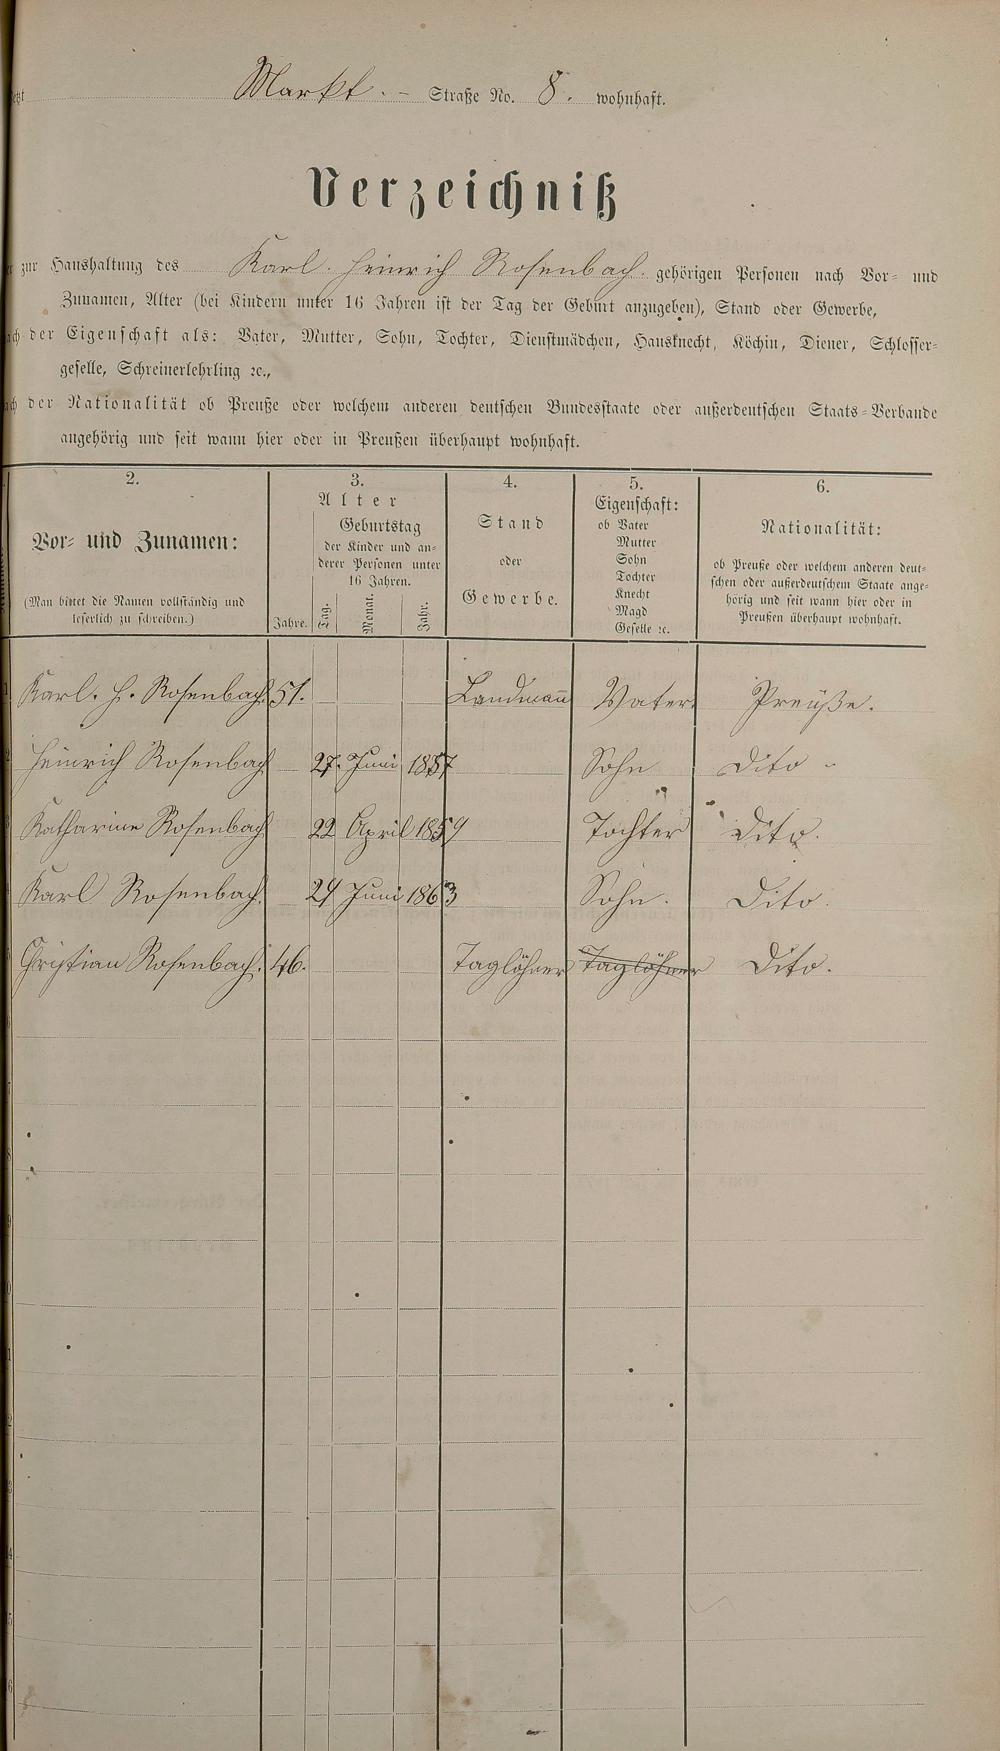 Markt. - Straße No. 8. wohnhaft.
Verzeichniß
zur Haushaltung des Karl. Heinrich Rosenbach. gehörigen Personen nach Vor- und
Zunamen, Alter (bei Kindern unter 16 Jahren ist der Tag der Geburt anzugeben), Stand oder Gewerbe,
der Eigenschaft als: Vater, Mutter, Sohn, Tochter, Dienstmädchen, Hausknecht, Köchin, Diener, Schlosser-
geselle, Schreinerlehrling ꝛc.,
der Nationalität ob Preuße oder welchem anderen deutschen Bundesstaate oder außerdeutschen Staats-Verbande
angehörig und seit wann hier oder in Preußen überhaupt wohnhaft.
2. 3. 4. 5. 6.
Vor- und Zunamen:
(Man bittet die Namen vollständig und
leserlich zu schreiben.)
Alter
Jahre.
Geburtstag
der Kinder und an-
derer Personen unter
16 Jahren.
Tag. Monat. Jahr.
Stand
oder
Gewerbe.
Eigenschaft:
ob Vater
Mutter
Sohn
Tochter
Knecht
Magd
Geselle ꝛc.
Nationalität:
ob Preuße oder welchem anderen deut-
schen oder außerdeutschem Staate ange-
hörig und seit wann hier oder in
Preußen überhaupt wohnhaft.
1 Karl. H. Rosenbach 51. Landmañ Vater Preüße.
2 Heinrich Rosenbach 27. Juni 1857 Sohn Dito -
3 Katharine Rosenbach 22 April 1859 Tochter Dito.
4 Karl Rosenbach. 29 Juni 1863 Sohn. Dito.
5 Christian Rosenbach. 46. Taglöhner Taglöhner Dito.
6
7
8
9
10
11
12
13
14
15
16